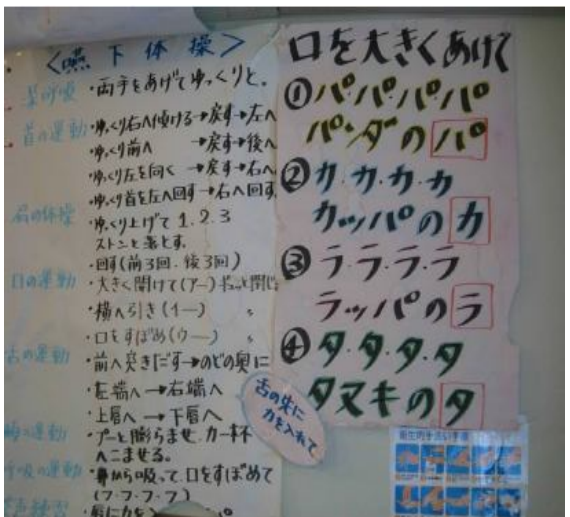 <嚥下体操>
深呼吸・両手をあげてゆっくりと。
首の運動・ゆっくり右へ傾ける→戻す→左へ
・ゆっくり前へ →戻す→後へ
・ゆっくり左を向く →戻す→右へ
・ゆっくり首を左へ回す→右へ回す
肩の体操・ゆっくり上げて1.2.3
ストンと落とす。
・回す(前3回.後3回)
口の運動・大きく開けて(アー)ギュッと閉じ
・横へ引き(イー) 〃
・口をすぼめ(ウー) 〃
舌の運動・前へ突きだす→のどの奥に
・左端へ→右端へ
・上唇へ→下唇へ
頬の運動・プーと膨らませ.力一杯
へこませる。
呼吸の運動・鼻から吸って.口をすぼめて
(フ・フ・フ・フ)
練習
口を大きくあけて
①パ.パ.パ.パ
パンダのパ
②カ.カ.カ.カ
カッパのカ
③ラ.ラ.ラ.ラ
ラッパのラ
④タ.タ.タ.タ
タヌキのタ
舌の先に
力を入れて